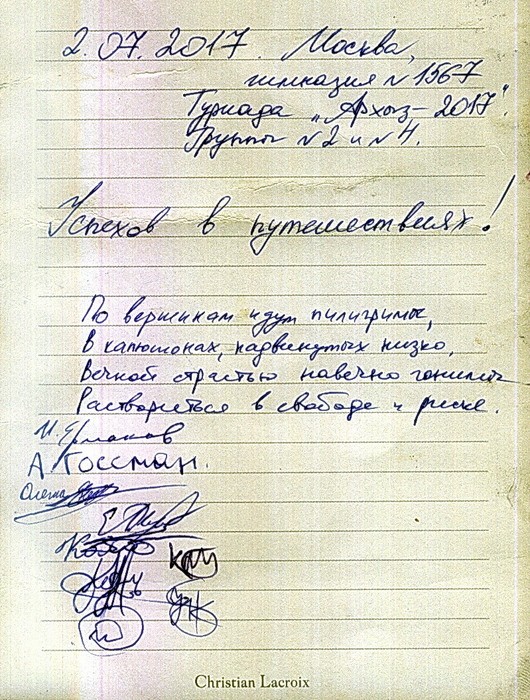 2.07.2017. Москва,
гимназия № 1567
Туриада „Архыз-2017".
Группы №2 и №4.
Успехов в путешествиях!
По вершинам идут пилигримы,
В капюшонах, надвинутых низко,
Вечной страстью навечно гонимы
Раствориться в свободе и риске.
И. Ермаков
А. Госсман.
Christian Lacroix